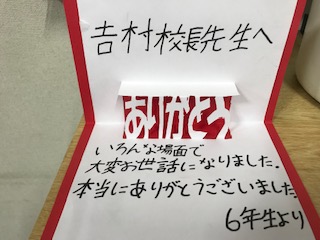 吉村校長先生へ
ありがとう
いろんな場面で
大変お世話になりました.
本当にありがとうございました
6年生より